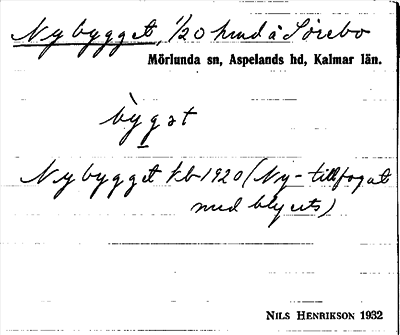 Nybygget, 1/20 hmd å Sörebo
Mörlunda sn, Aspelands hd, Kalmar län.
bygət
Nybygget kb 1920 (Ny- tillfogat
med blyerts)
NILS HENRIKSON 1932